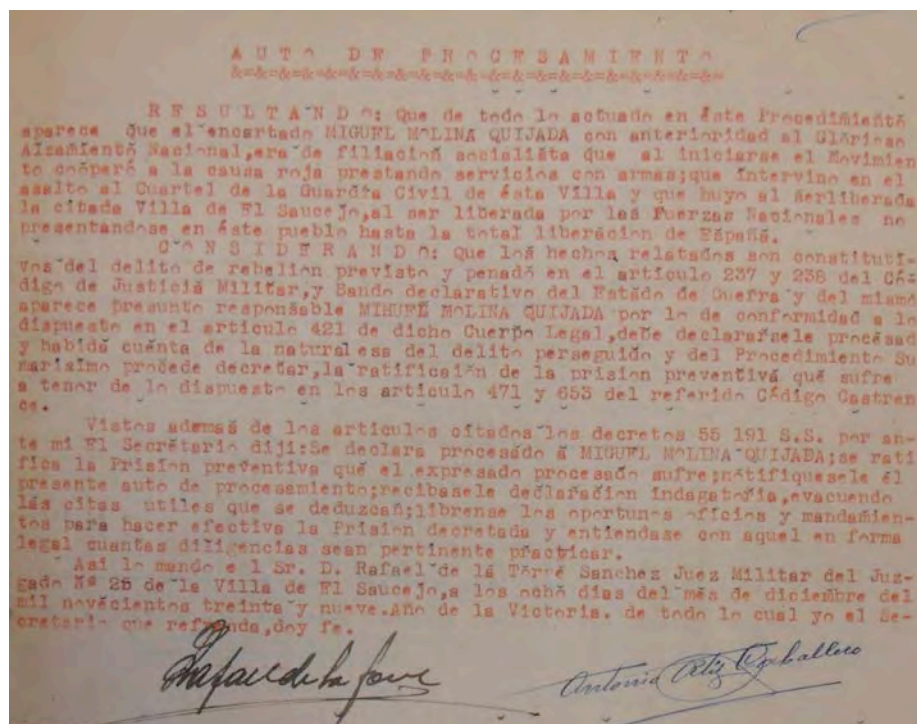 AUTO DE PROCESAMIENTO
&=&=&=&=&=&=&=&=&=&=&=&=&=&=&=&=&=&=&=&=&=&=&=
RESULTANDO: Que de todo lo actuado en éste Procedimientó
aparece que el encartado MIGUEL MOLINA QUIJADA con anterioridad al Glórioso
Alzamientó Nacional,era de filiación socialista que al iniciarse el Movimien
to coóperó a la causa roja prestando servicios con armas;que intervino en el
asalto al Cuartel de la Guardia Civil de ésta Villa y que huyo al serliberada
la citada Villa de El Saucejo,al ser liberada por las Fuerzas Nacionales no
presentandose en éste pueblo hasta la total liberácion de España.
CONSIDERANDO: Que los hechos relatados son constituti-
vos del delito de rebelión previsto y penadó en el articulo 237 y 238 del Có-
digo de Justiciá Militar,y Bando declarativo del Estado de Guerra y del mismo
aparece presunto responsable MIHUFE MOLINA QUIJADA por lo de conformidad a lo
dispuesto en el articulo 421 de dicho Cuerpo Legal,debe declararsele procesad
y habida cuénta de la naturalesa del delito perseguido y del Procedimiento Su
marisimo procede decretar,la ratificaión de la prision preventivá qué sufre
a tenor de lo dispuesto en los articulo 471 y 653 del referido Código Castren
ce.
Vistos ademas de los articulos citados los decretos 55 191 S.S. por an-
te mi El Secrétario diji:Se declara procesado á MIGUEL MOLINA QUIJADA;se rati
fica la Prision preventiva qué el expresado procesado sufre;nótifiquesele él
presente auto de procesamiento;recibasele declaración indagatoria,evacuendo
lás citas utiles que se deduzcan;librense los oportunos oficios y mandamien-
tos para hacer efectiva la Prision decretada y entiendase con aquel en forma
legal cuantas diligencias sean pertinente practicar.
Asi lo mando e l Sr. D. Rafael de lá Tórré Sanchez Juez Militar del Juz-
gado Nª 25 de la Villa de El Saucejo,a los ochó dias del més de diciembre del
mil novécientos treinta y nueve.Año de la Victoria. de todo lo cual yo el Se-
cretario que refrenda,doy fe.
Rafael de la Torre
Antonio Ortiz Caballero